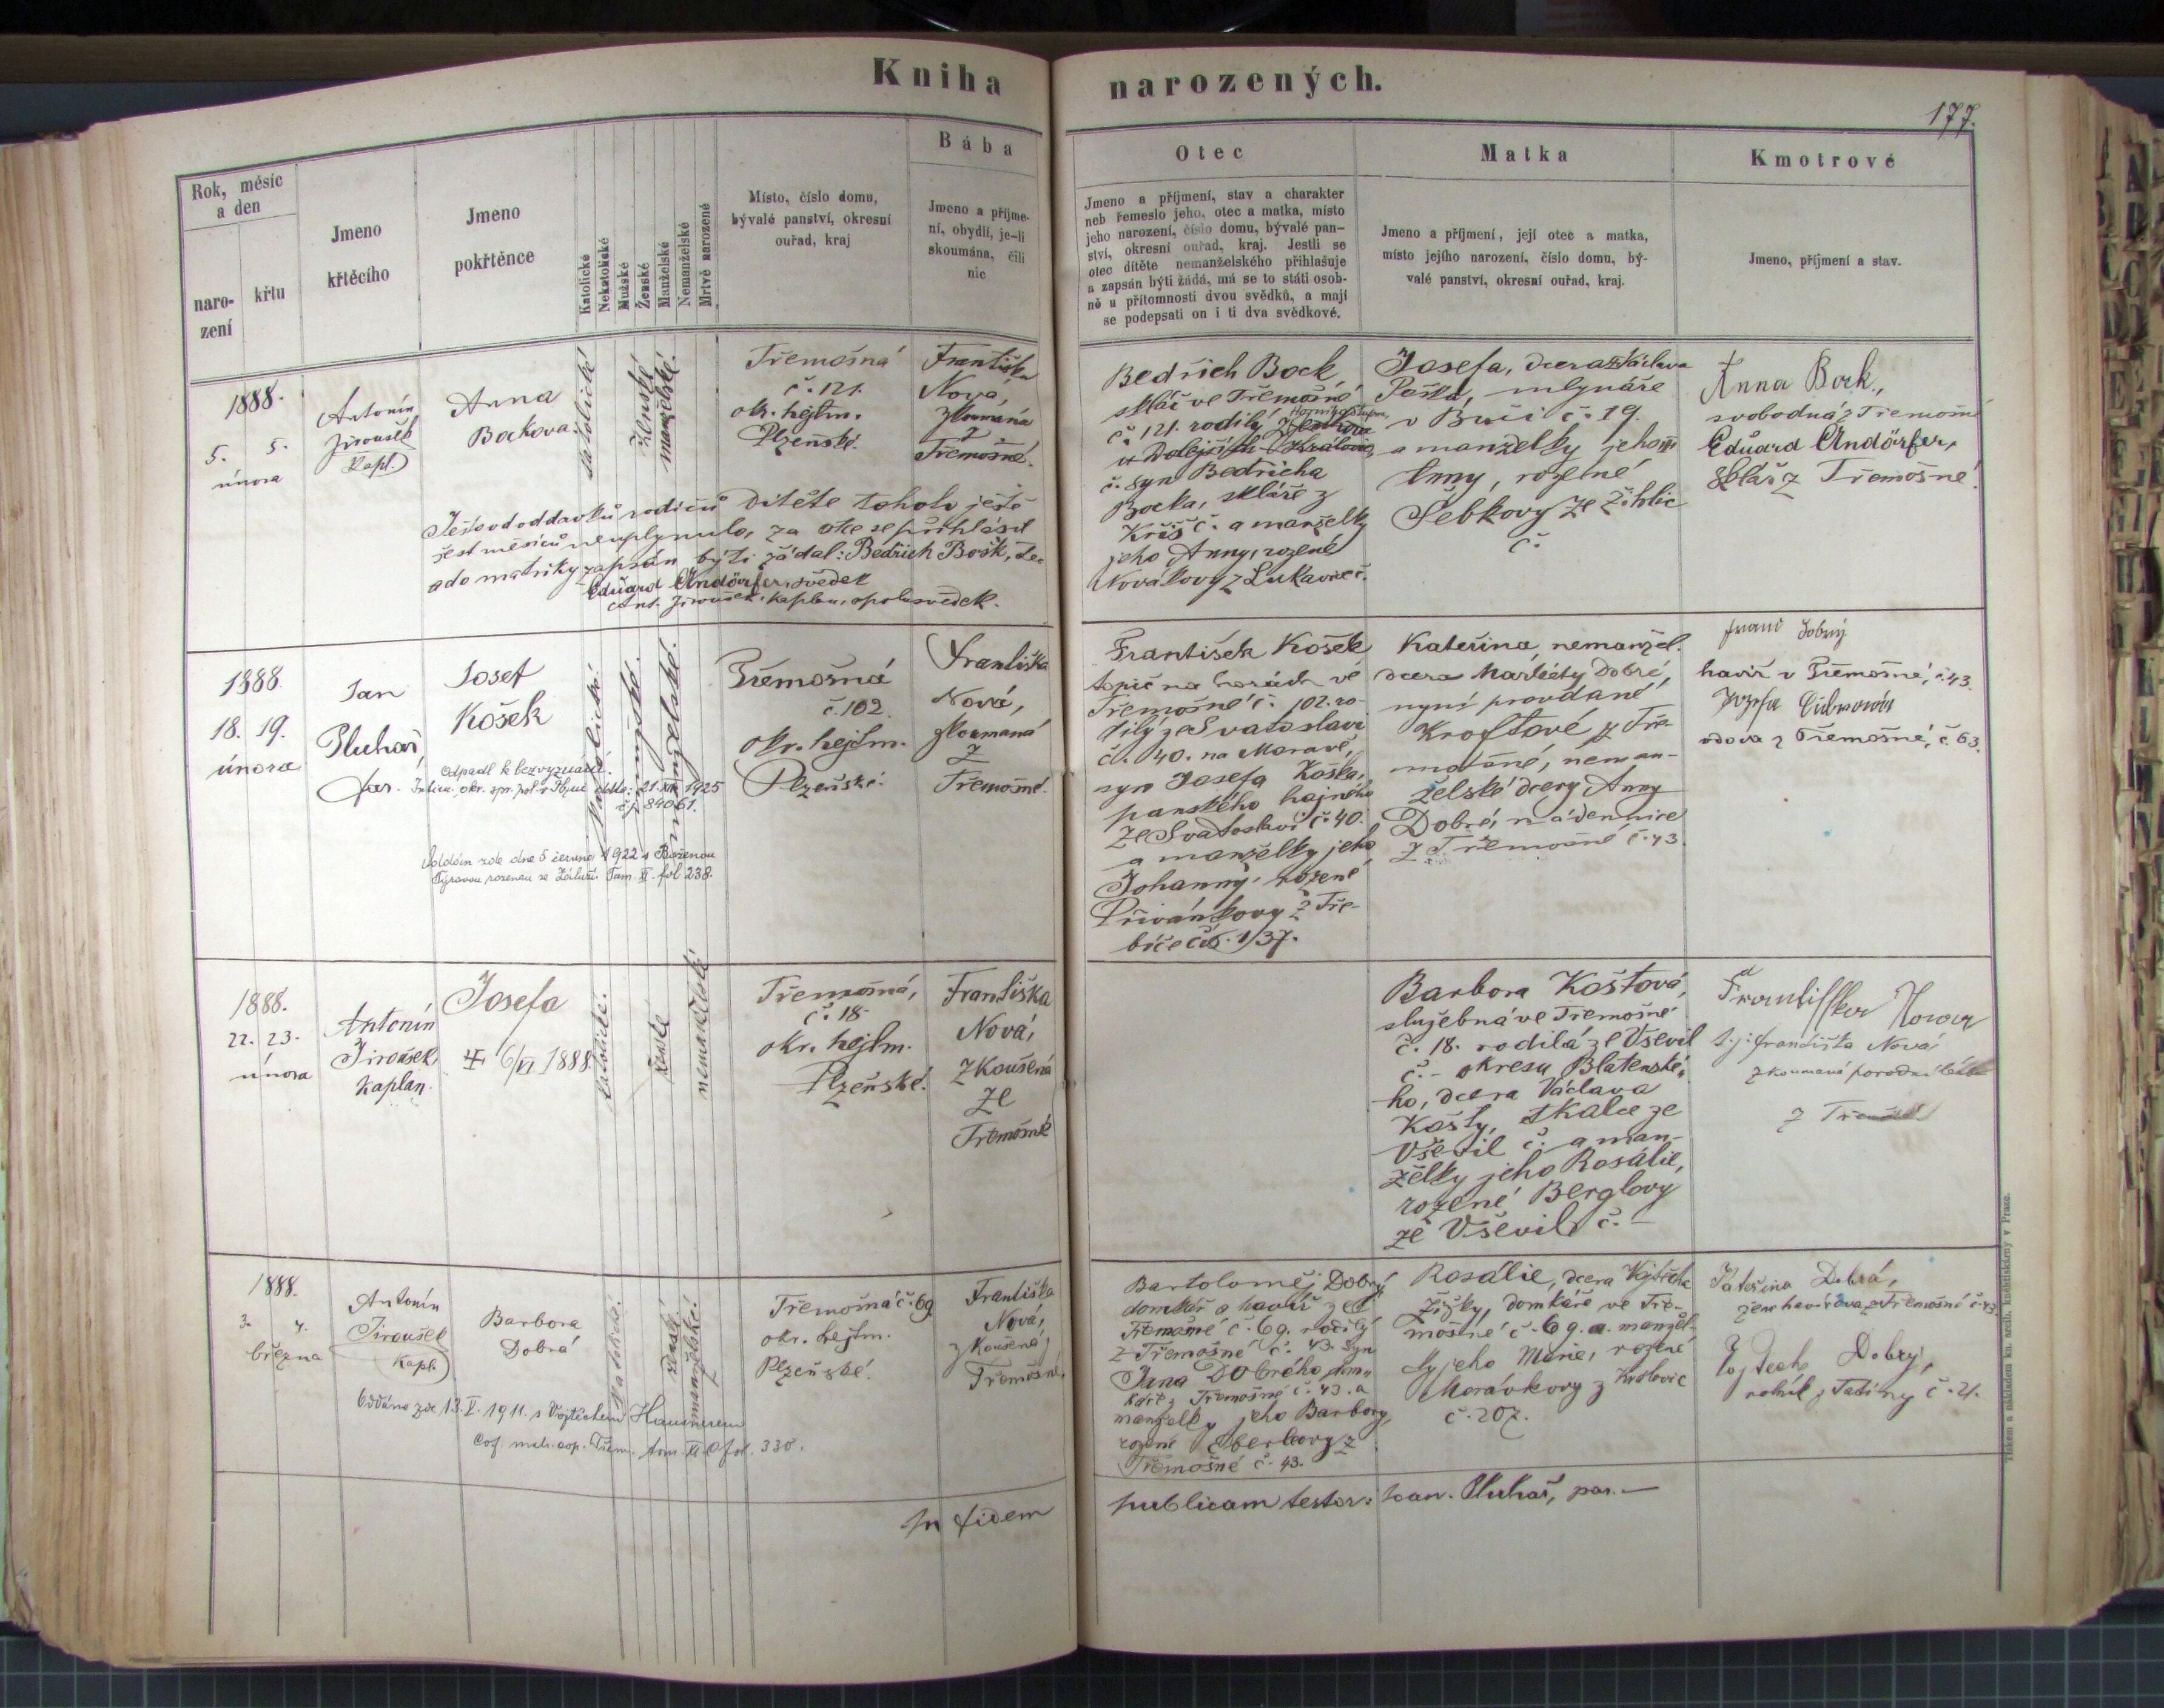 Kniha narozených.
177.
Rok, měsíc
a den
naro-
zení
křtu
Jmeno
křtěcího
Jmeno
pokřtěnce
Katolické
Nekatolické
Mužské
Ženské
Manželské
Nemanželské
Mrtvě narozené
Místo, číslo domu,
bývalé panství, okresní
ouřad, kraj
Bába
Jmeno a příjme-
ní, obydlí, je-li
skoumána, čili
nic
Otec
Jmeno a příjmení, stav a charakter
neb řemeslo jeho, otec a matka, místo
jeho narození, číslo domu, bývalé pan-
ství, okresní ouřad, kraj. Jestli se
otec dítěte nemanželského přihlašuje
a zapsán býti žádá, má se to státi osob-
ně u přítomnosti dvou svědků, a mají
se podepsati on i ti dva svědkové.
Matka
Jmeno a příjmení, její otec a matka,
místo jejího narození, číslo domu, bý-
valé panství, okresní ouřad, kraj.
Kmotrové
Jmeno, příjmení a stav.
1888.
5. 5.
února
Antonín
Jiroušek
Kapl.
Anna
Bockova
katolické
ženské
manželské.
Třemošná
č. 121.
okr. hejtm.
Plzeňské.
Františka
Nová,
zkoumaná
z
Třemošné.
Bedřich Bock
sklář ve Třemošné
č. 121. rodilý
č. syn Bedřicha
Bocka, skláře z
Kříš č. a manželky
jeho Anny, rozené
Novákovy z Lukavice č.
Josefa, dcera Václava
Peška, mlynáře
v Buči č. 19.
a manželky jeho
Anny, rozené
Šebkovy ze Žihlic
č.
Anna Bock,
svobodná z Třemošné
Eduard Andörfer,
Sklář z Třemošné.
Ješto od oddavků rodičů dítěte tohoto ještě
šest měsíců neuplynulo, za otce se přihlásil
a do matriky zapsán býti žádal: Bedřich Bock,
Eduard Andörfer, svědek
Ant. Jiroušek, kaplan, spolusvědek.
1888.
18. 19.
února
Jan
Pluhař,
far.
Josef
Košek
katolické.
mužské.
manželské.
Odpadl k bezvyznání.
okr. spr. pol. v 21. XII. 1925
čj. 84061.
Oddán zde dne 5 června 1922 s Boženou
rozenou ze Záluží. Tom. XI. fol 238.
Třemošná
č. 102.
okr. hejtm.
Plzeňské.
Františka
Nová,
zkoumaná
z
Třemošné.
František Košek
topič na horách ve
Třemošné č. 102. ro-
dilý ze Svatoslavi
č. 40. na Moravě,
syn Josefa Koška,
panského hajného
ze Svatoslavi č. 40.
a manželky jeho
Johanny, rozené
Přivánkovy z Tře-
bíče č. 137.
Kateřina, nemanžel.
dcera Markéty Dobré,
nyní provdané
Kroftové z Tře-
mošné, neman-
želské dcery Anny
Dobré, nádennice
z Třemošné č. 43.
Franc Dobrý
havíř v Třemošné, č. 43.
vdova z Třemošné, č. 63.
1888.
22. 23.
února
Antonín
Jiroušek,
kaplan.
Josefa
6/VI 1888.
katolické.
ženské
nemanželské
Třemošná,
č. 18.
okr. hejtm.
Plzeňské.
Františka
Nová,
zkoušená
ze
Třemošné
Barbora Koštová,
služebná ve Třemošné
č. 18. rodilá ze Vševil
č. – okresu Blatenské-
ho, dcera Václava
Košty, tkalce ze
Vševil č. a man-
želky jeho Rosálie,
rozené Berglovy
ze Vševil č. –
Františka Nová
t. j. Františka Nová
zkoumaná porodní bába
z Třemošné
1888.
3. 4.
března
Antonín
Jiroušek
Kapl.
Barbora
Dobrá
katolické.
ženské.
manželské.
Oddána zde 13. V. 1911. s Vojtěchem Hausnerem
Cof. matr. cop. Třem. tom. XI. fol. 330.
Třemošná č. 69.
okr. hejtm.
Plzeňské.
Františka
Nová,
zkoušená,
Třemošné.
Bartoloměj Dobrý
domkář a havíř ze
Třemošné č. 69. rodilý
z Třemošné č. 43. syn
Jana Dobrého dom-
káře z Třemošné č. 43. a
manželky jeho Barbory,
rozené Eberlovy z
Třemošné č. 43.
Rosálie, dcera Vojtěcha
Žižky, domkáře ve Tře-
mošné č. 69. a manžel-
ky jeho Marie, rozené
Morávkovy z Kralovic
č. 207.
Kateřina Dobrá,
žena havířova z Třemošné č. 43
Vojtěch Dobrý,
rolník z Tatiny č. 21.
In fidem publicam testor: Joan. Pluhař, par. —
Tiskem a nákladem kn. arcib. knihtiskárny v Praze.